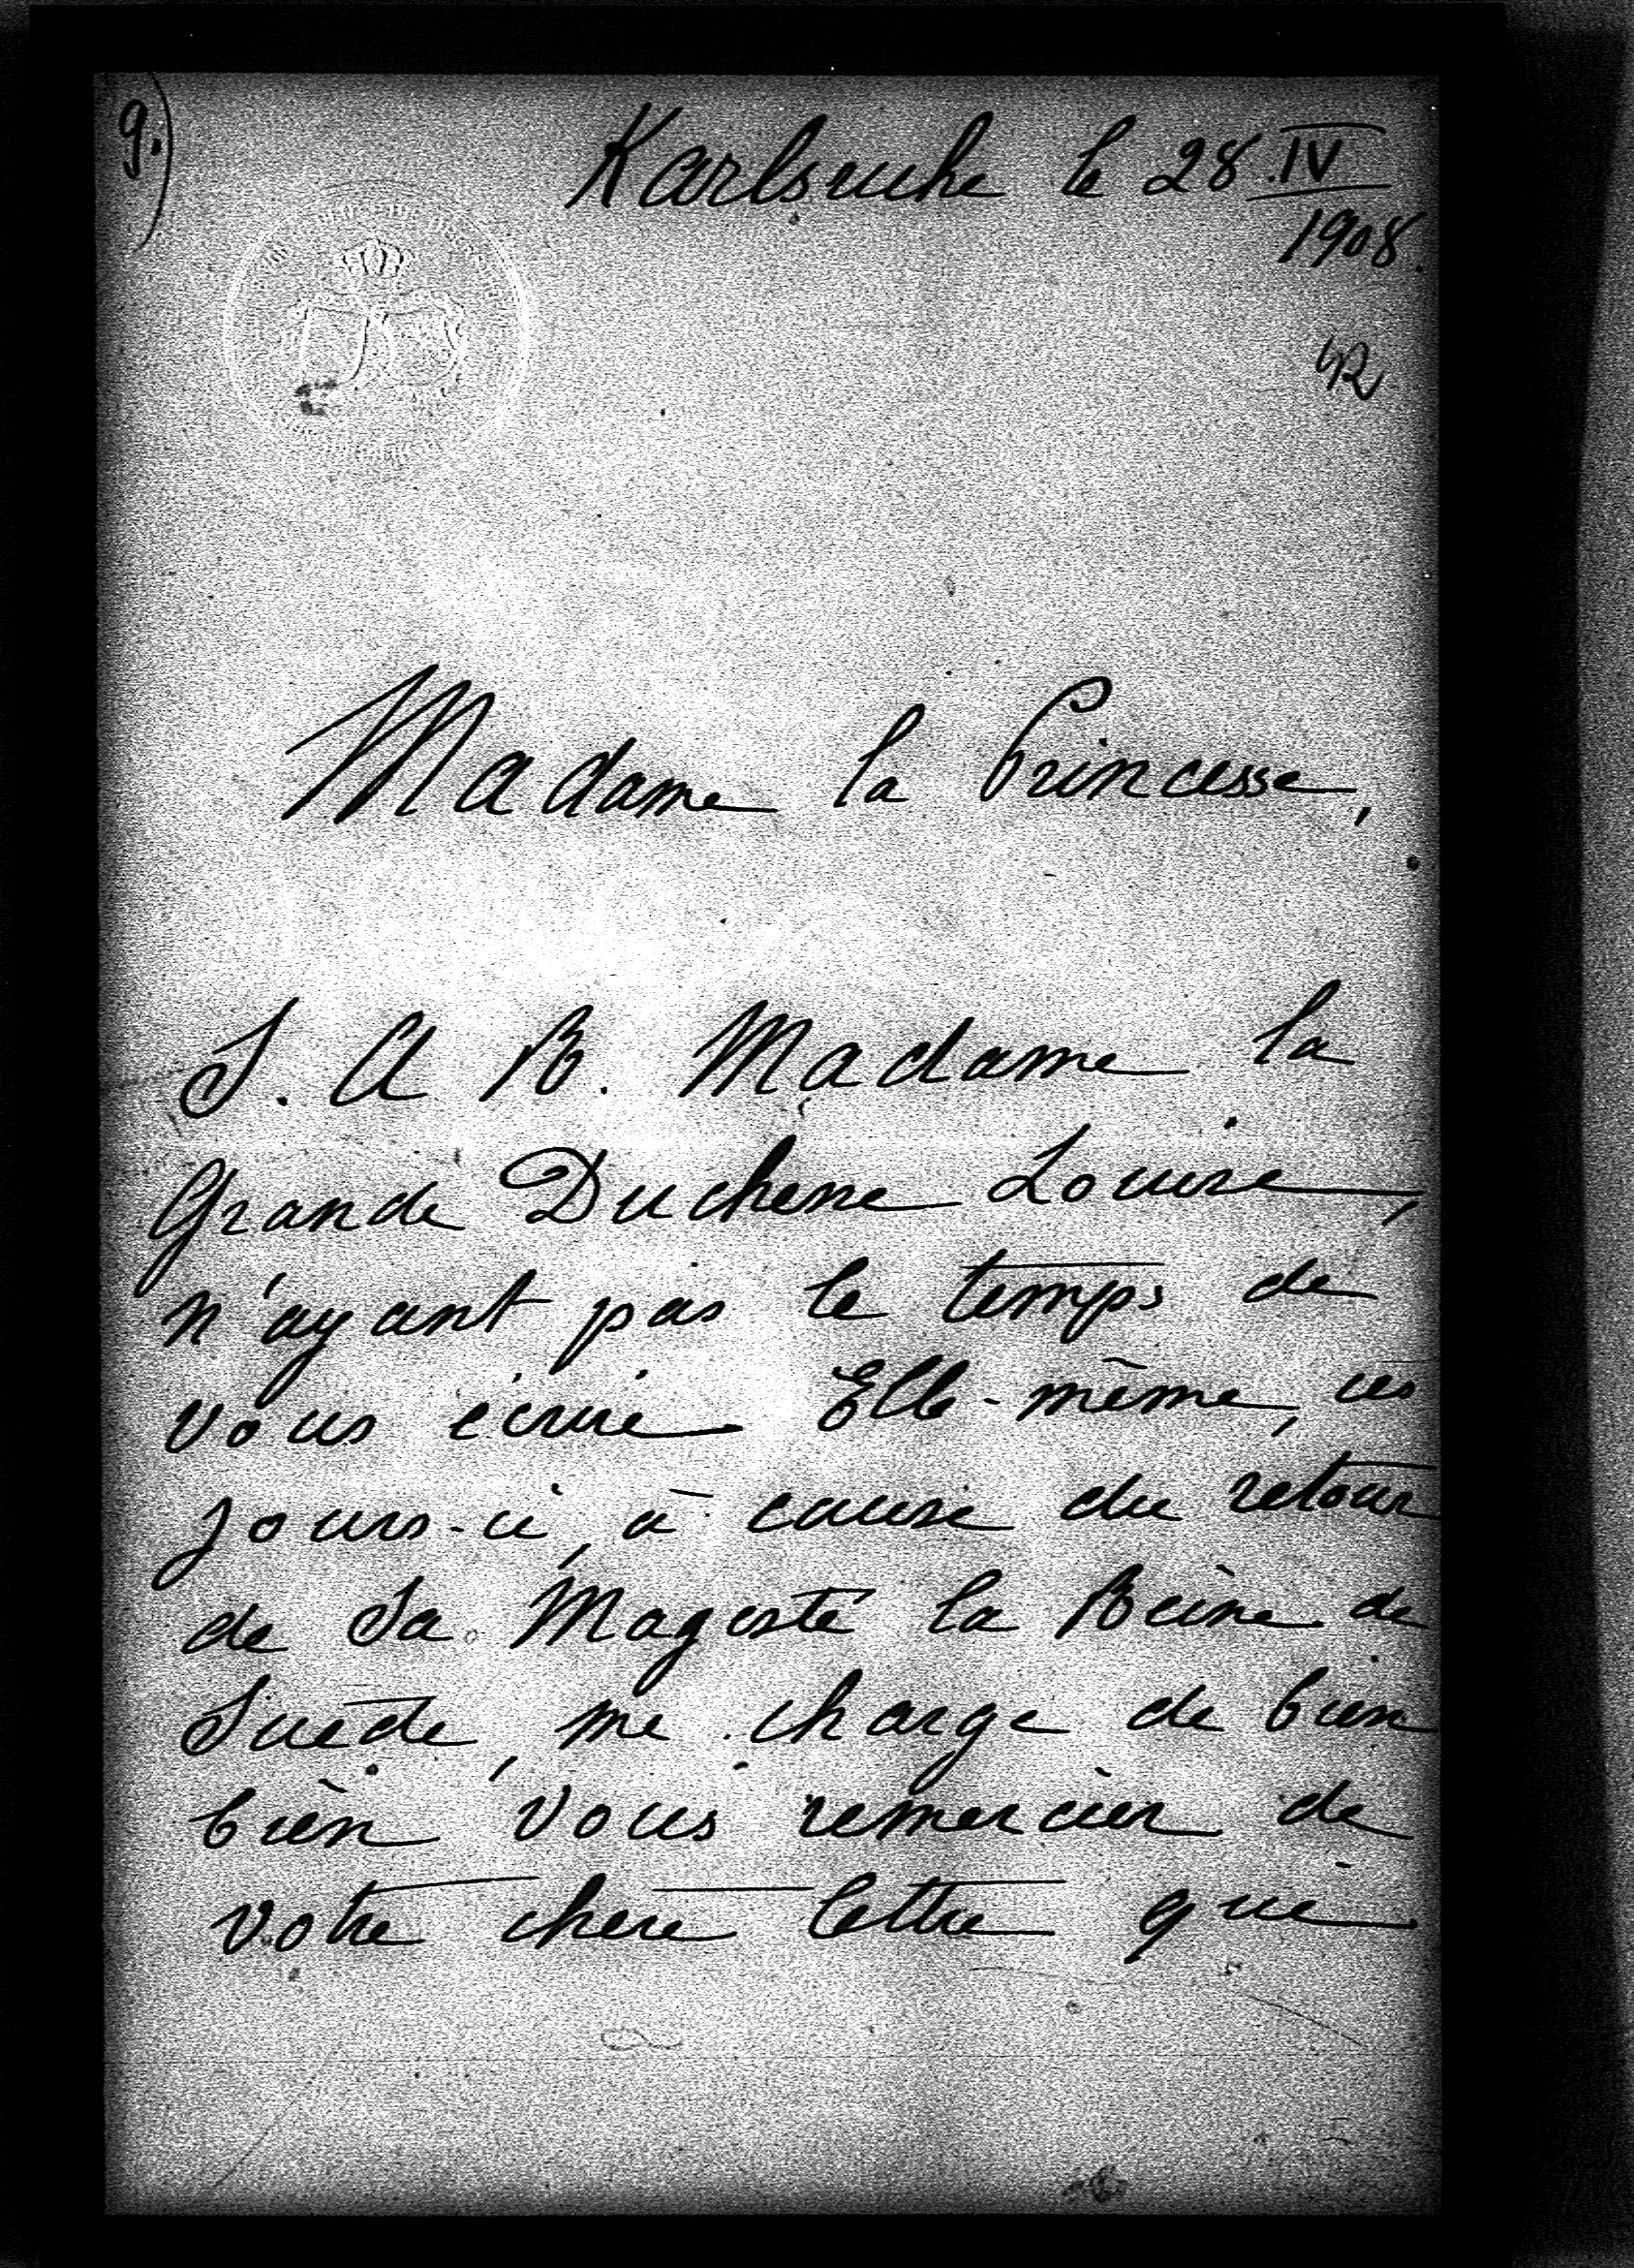 9.)
Karlsruhe le 28.IV
1908.
Madame la Princesse,
S. A R. Madame la
Grande Duchesse Louise,
n'ayant pas le temps de
vous écrire Elle-même, ces
jours-ci, à cause du retour
de Sa Magesté la Reine de
Suède, me charge de bien
bien vous remercier de
votre chere lettre que